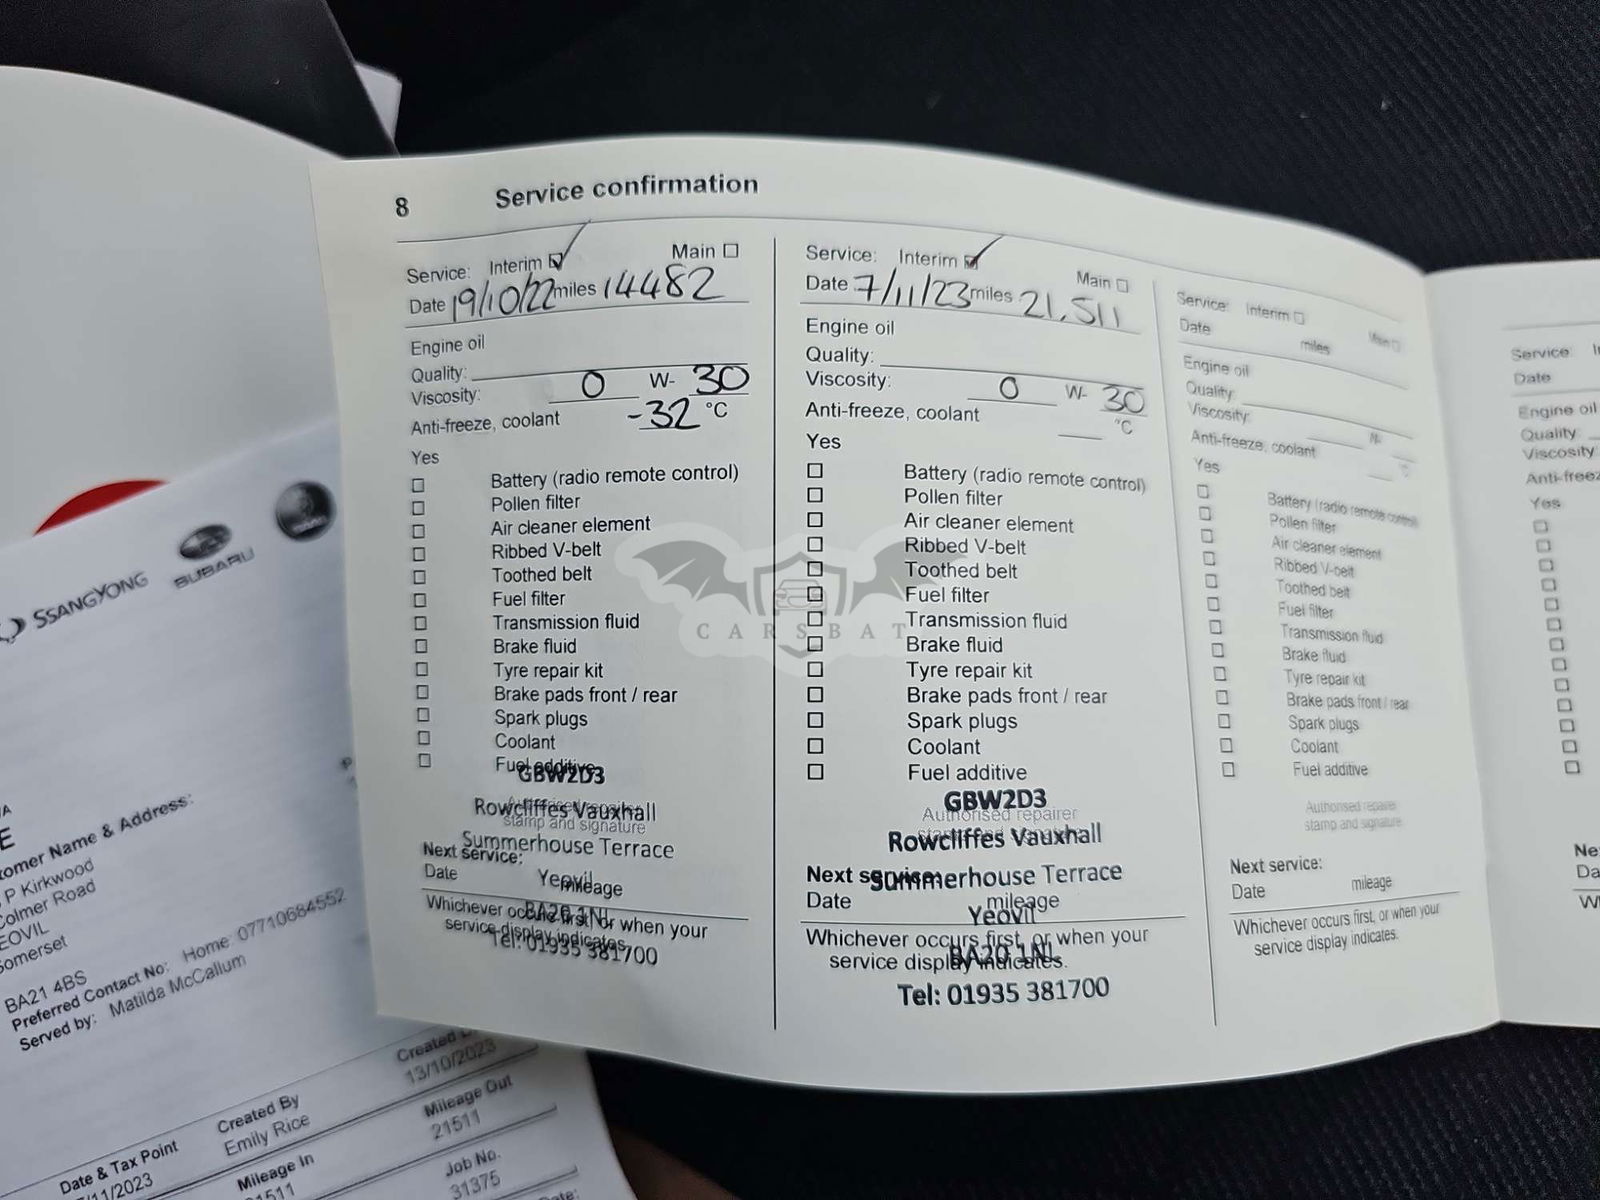 8 Service confirmation
Service: Interim Main
Date 19/10/22 miles 14482
Engine oil
Quality:
Viscosity: 0 W- 30
Anti-freeze, coolant -32 °C
Yes
Battery (radio remote control)
Pollen filter
Air cleaner element
Ribbed V-belt
Toothed belt
Fuel filter
Transmission fluid
Brake fluid
Tyre repair kit
Brake pads front / rear
Spark plugs
Coolant
Fuel additive
GBW2D3
Authorised repairer
Rowcliffes Vauxhall
stamp and signature
Summerhouse Terrace
Next service:
Yeovil
Date mileage
BA20 1NL
Whichever occurs first, or when your
service display indicates.
Tel: 01935 381700
Service: Interim Main
Date 7/11/23 miles 21,511
Engine oil
Quality:
Viscosity: 0 W- 30
Anti-freeze, coolant °C
Yes
Battery (radio remote control)
Pollen filter
Air cleaner element
Ribbed V-belt
Toothed belt
Fuel filter
Transmission fluid
Brake fluid
Tyre repair kit
Brake pads front / rear
Spark plugs
Coolant
Fuel additive
GBW2D3
Authorised repairer
stamp and signature
Rowcliffes Vauxhall
Next service:
Summerhouse Terrace
Date mileage
Yeovil
Whichever occurs first, or when your
BA20 1NL
service display indicates.
Tel: 01935 381700
Service: Interim Main
Date miles
Engine oil
Quality:
Viscosity: W-
Anti-freeze, coolant °C
Yes
Battery (radio remote control)
Pollen filter
Air cleaner element
Ribbed V-belt
Toothed belt
Fuel filter
Transmission fluid
Brake fluid
Tyre repair kit
Brake pads front / rear
Spark plugs
Coolant
Fuel additive
Authorised repairer
stamp and signature
Next service:
Date mileage
Whichever occurs first, or when your
service display indicates.
Service
Date
Engine oil
Quality:
Viscosity:
Yes
CARSBAT
SSANGYONG
SUBARU
Name & Address:
P Kirkwood
Colmer Road
Somerset
BA21 4BS
Preferred Contact No: Home: 07710684552
Served by: Matilda McCallum
Created
13/10/2023
Date & Tax Point
Created By
Emily Rice
Mileage Out
21511
Mileage In
Job No.
31375